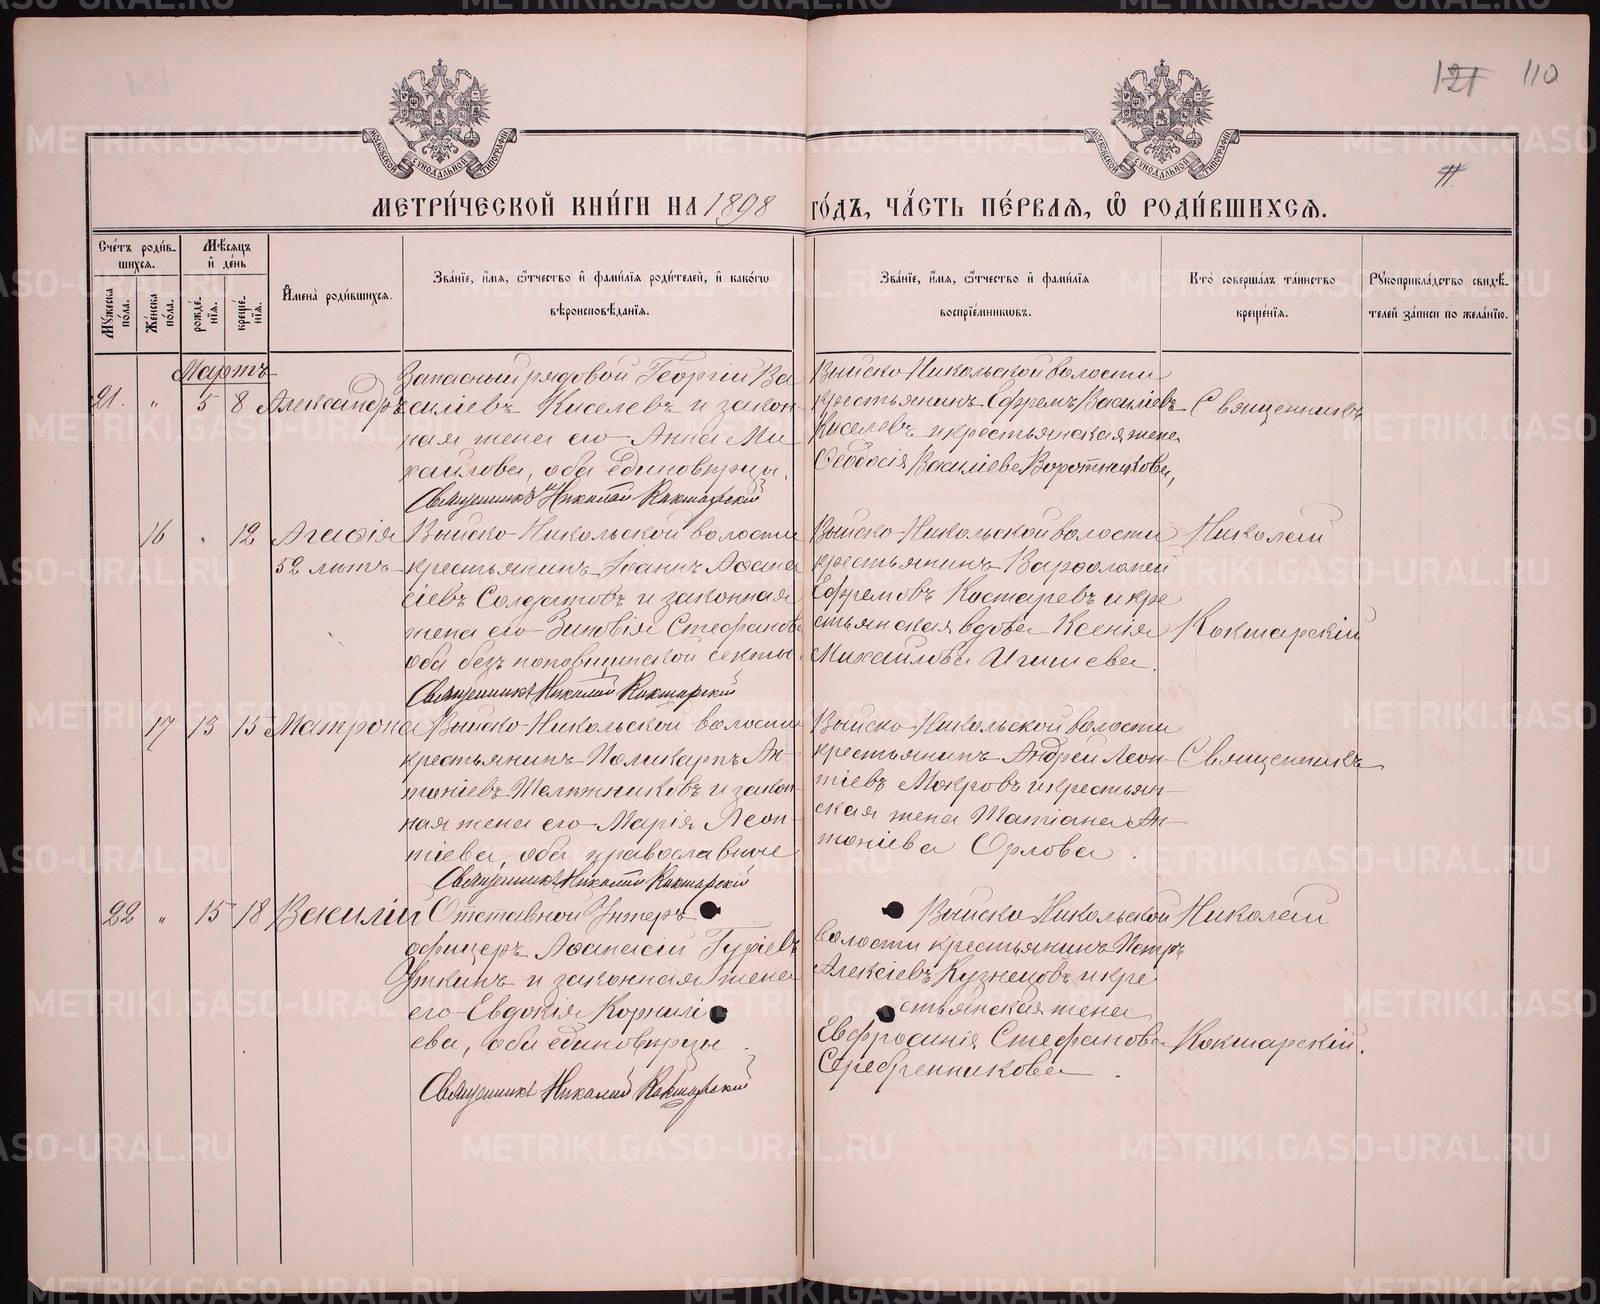 121 110
11
МОСКОВСКОЙ СѴНОДАЛЬНОЙ ТИПОГРАФИИ
МОСКОВСКОЙ СѴНОДАЛЬНОЙ ТИПОГРАФИИ
МЕТРИ́ЧЕСКОЙ КНИ́ГИ НА 1898 ГО́ДЪ, ЧА́СТЬ ПЕ́РВАѦ, Ѡ РОДИ́ВШИХСѦ.
Сче́тъ роди́в-
шихсѧ.
Мꙋжеска по́ла.
Же́нска по́ла.
Мѣ́сѧцъ
и҆ де́нь
рожде́-
нїѧ.
креще́-
нїѧ.
И҆мена̀ роди́вшихсѧ.
Зва́нїе, и҆́мѧ, ѻ҆́тчество и҆ фами́лїѧ роди́телей, и҆ како́гѡ
вѣроисповѣ́данїѧ.
Зва́нїе, и҆́мѧ, ѻ҆́тчество и҆ фами́лїѧ
воспрїе́мникѡвъ.
Кто̀ соверша́лъ та́инство
креще́нїѧ.
Рꙋкоприкла́дство свидѣ́-
телей за́писи по жела́нїю.
Мартъ
21. " 5 8 Александръ
Запасный рядовой Георгій Ва
силіевъ Киселевъ и закон-
ная жена его Анна Ми
хаилова, оба единовѣрцы.
Священникъ Николай Кокшарскій
Выйско-Никольской волости
крестьянинъ Ефремъ Василіевъ
Киселевъ и крестьянская жена
Ѳеодосія Василіева Воротникова,
Священникъ
16 " 12 Агафія
52 лѣтъ
Выйско-Никольской волости
крестьянинъ Іоаннъ Аѳана
сіевъ Солдатовъ и законная
жена его Зиновія Стефанова
оба безъ поповщинской секты.
Священникъ Николай Кокшарскій
Выйско-Никольской волости
крестьянинъ Варѳоломей
Ефремовъ Костаревъ и кре
стьянская вдова Ксенія
Михайлова Игишева.
Николай
Кокшарскій
17 13 15 Матрона
Выйско-Никольской волости
крестьянинъ Поликарпъ Ан-
тоніевъ Телѣжниковъ и закон
ная жена его Марія Леон-
тіева, оба православные
Священникъ Николай Кокшарскій
Выйско-Никольской волости
крестьянинъ Андрей Леон-
тіевъ Мокровъ и крестьян-
ская жена Татіана Ан-
тоніева Орлова.
Священникъ
22 " 15 18 Василій
Отставной Унтеръ
офицеръ Аѳанасій Гуріевъ
Уткинъ и законная жена
его Евдокія Корнилі
ева, оба единовѣрцы.
Священникъ Николай Кокшарскій
Выйско-Никольской
волости крестьянинъ Петръ
Алексіевъ Кузнецовъ и кре
стьянская жена
Евфросинія Стефанова
Серебренникова.
Николай
Кокшарскій.
METRIKI.GASO-URAL.RU